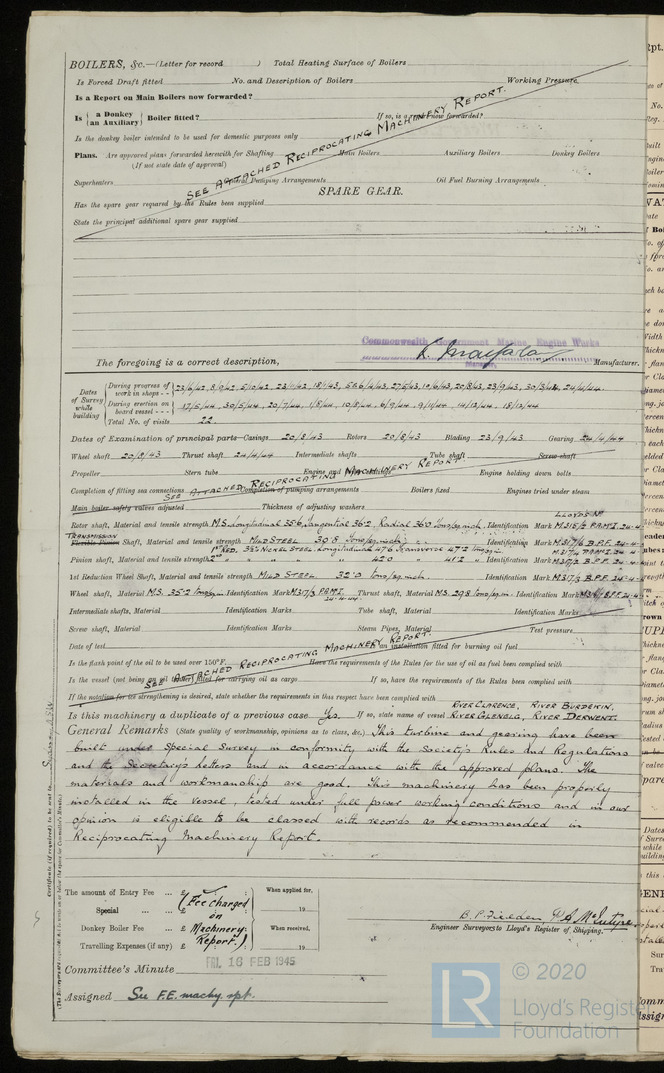 BOILERS, &c.—(Letter for record ) Total Heating Surface of Boilers
Is Forced Draft fitted No. and Description of Boilers Working Pressure
Is a Report on Main Boilers now forwarded?
Is { a Donkey / an Auxiliary } Boiler fitted? If so, is a report now forwarded?
Is the donkey boiler intended to be used for domestic purposes only
SEE ATTACHED RECIPROCATING MACHINERY REPORT.
Plans. Are approved plans forwarded herewith for Shafting Main Boilers Auxiliary Boilers Donkey Boilers
(If not state date of approval)
Superheaters General Pumping Arrangements Oil Fuel Burning Arrangements
SPARE GEAR.
Has the spare gear required by the Rules been supplied
State the principal additional spare gear supplied
Commonwealth Government Marine Engine Works
The foregoing is a correct description, Manager. Manufacturer.
Dates of Survey while building
During progress of work in shops - -
During erection on board vessel - - - 17/5/44, 30/5/44, 20/7/44, 1/8/44, 10/8/44, 6/9/44, 9/11/44, 14/12/44, 18/12/44
Total No. of visits 22
Dates of Examination of principal parts—Casings 20/8/43 Rotors 20/8/43 Blading 23/9/43 Gearing 24/4/44
Wheel shaft 20/8/43 Thrust shaft 24/4/44 Intermediate shafts Tube shaft Screw shaft
Propeller Stern tube Engine and Engine holding down bolts
SEE ATTACHED RECIPROCATING MACHINERY REPORT
Completion of fitting sea connections Completion of pumping arrangements Boilers fixed Engines tried under steam
Main boiler safety valves adjusted Thickness of adjusting washers
LLOYDS Nº
Rotor shaft, Material and tensile strength M.S. Longitudinal 35.6, Tangential 36.2, Radial 36.0 tons/sq.inch. Identification Mark
TRANSMISSION
Flexible Pinion Shaft, Material and tensile strength MILD STEEL 30.8 tons/sq.inch Identification Mark
1st RED. 3½% NICKEL STEEL. Longitudinal 47.6 Transverse 47.2 tons/sq.in.
Pinion shaft, Material and tensile strength 2nd " " " " 42.0 " 41.2 " Identification Mark
1st Reduction Wheel Shaft, Material and tensile strength MILD STEEL 32.0 tons/sq.inch. Identification Mark
Wheel shaft, Material M.S. 35.2 tons/sq.in Identification Mark Thrust shaft, Material M.S. 29.8 tons/sq.in. Identification Mark
Intermediate shafts, Material Identification Marks Tube shaft, Material Identification Marks
Screw shaft, Material Identification Marks Steam Pipes, Material Test pressure
Date of test an installation fitted for burning oil fuel
SEE ATTACHED RECIPROCATING MACHINERY REPORT.
Is the flash point of the oil to be used over 150°F. Have the requirements of the Rules for the use of oil as fuel been complied with
Is the vessel (not being an oil tanker) fitted for carrying oil as cargo If so, have the requirements of the Rules been complied with
If the notation for ice strengthening is desired, state whether the requirements in this respect have been complied with
RIVER CLARENCE, RIVER BURDEKIN,
Is this machinery a duplicate of a previous case Yes. If so, state name of vessel RIVER GLENELG, RIVER DERWENT.
General Remarks (State quality of workmanship, opinions as to class, &c.) This turbine and gearing have been
built under Special Survey in conformity with the Society's Rules and Regulations
and the Secretary's letters and in accordance with the approved plans. The
materials and workmanship are good. This machinery has been properly
installed in the vessel, tested under full power working conditions and in our
opinion is eligible to be classed with records as recommended in
Reciprocating Machinery Report.
Certificate (if required) to be sent to
The amount of Entry Fee ... £ When applied for,
Special ... ... £ 19
(Fee charged on Machinery Report.)
Donkey Boiler Fee ... £ When received,
Travelling Expenses (if any) £ 19
B. P. Fielden P. A. McIntyre
Engineer Surveyors to Lloyd's Register of Shipping.
Committee's Minute FRI. 16 FEB 1945
Assigned See F.E. machy. rpt.
LR
© 2020
Lloyd's Register
Foundation